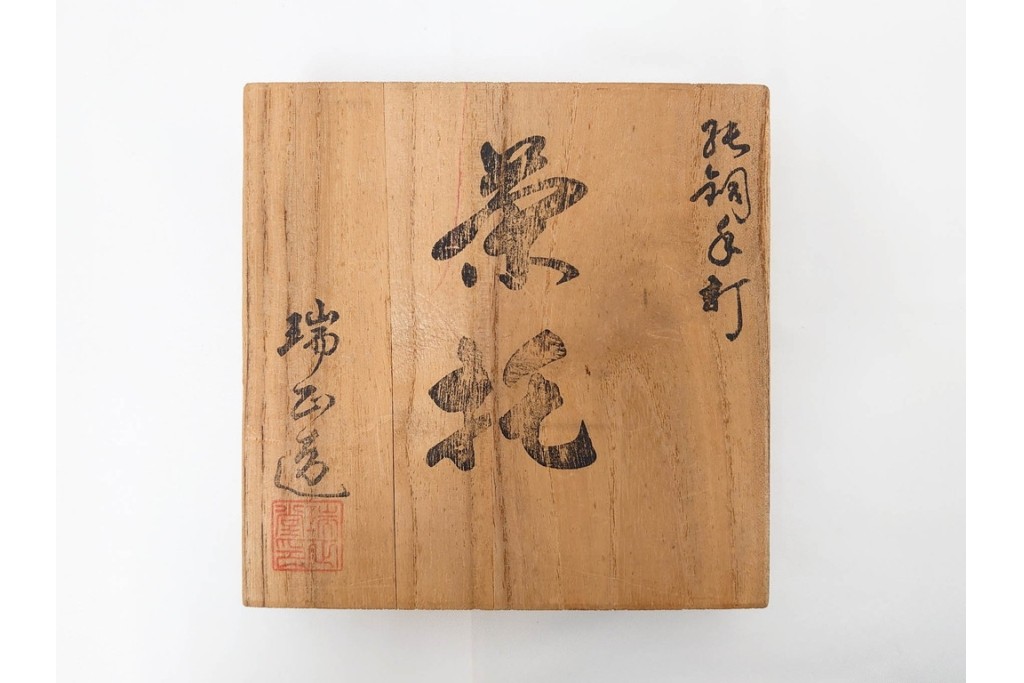 純銅手打
茶托
瑞正造